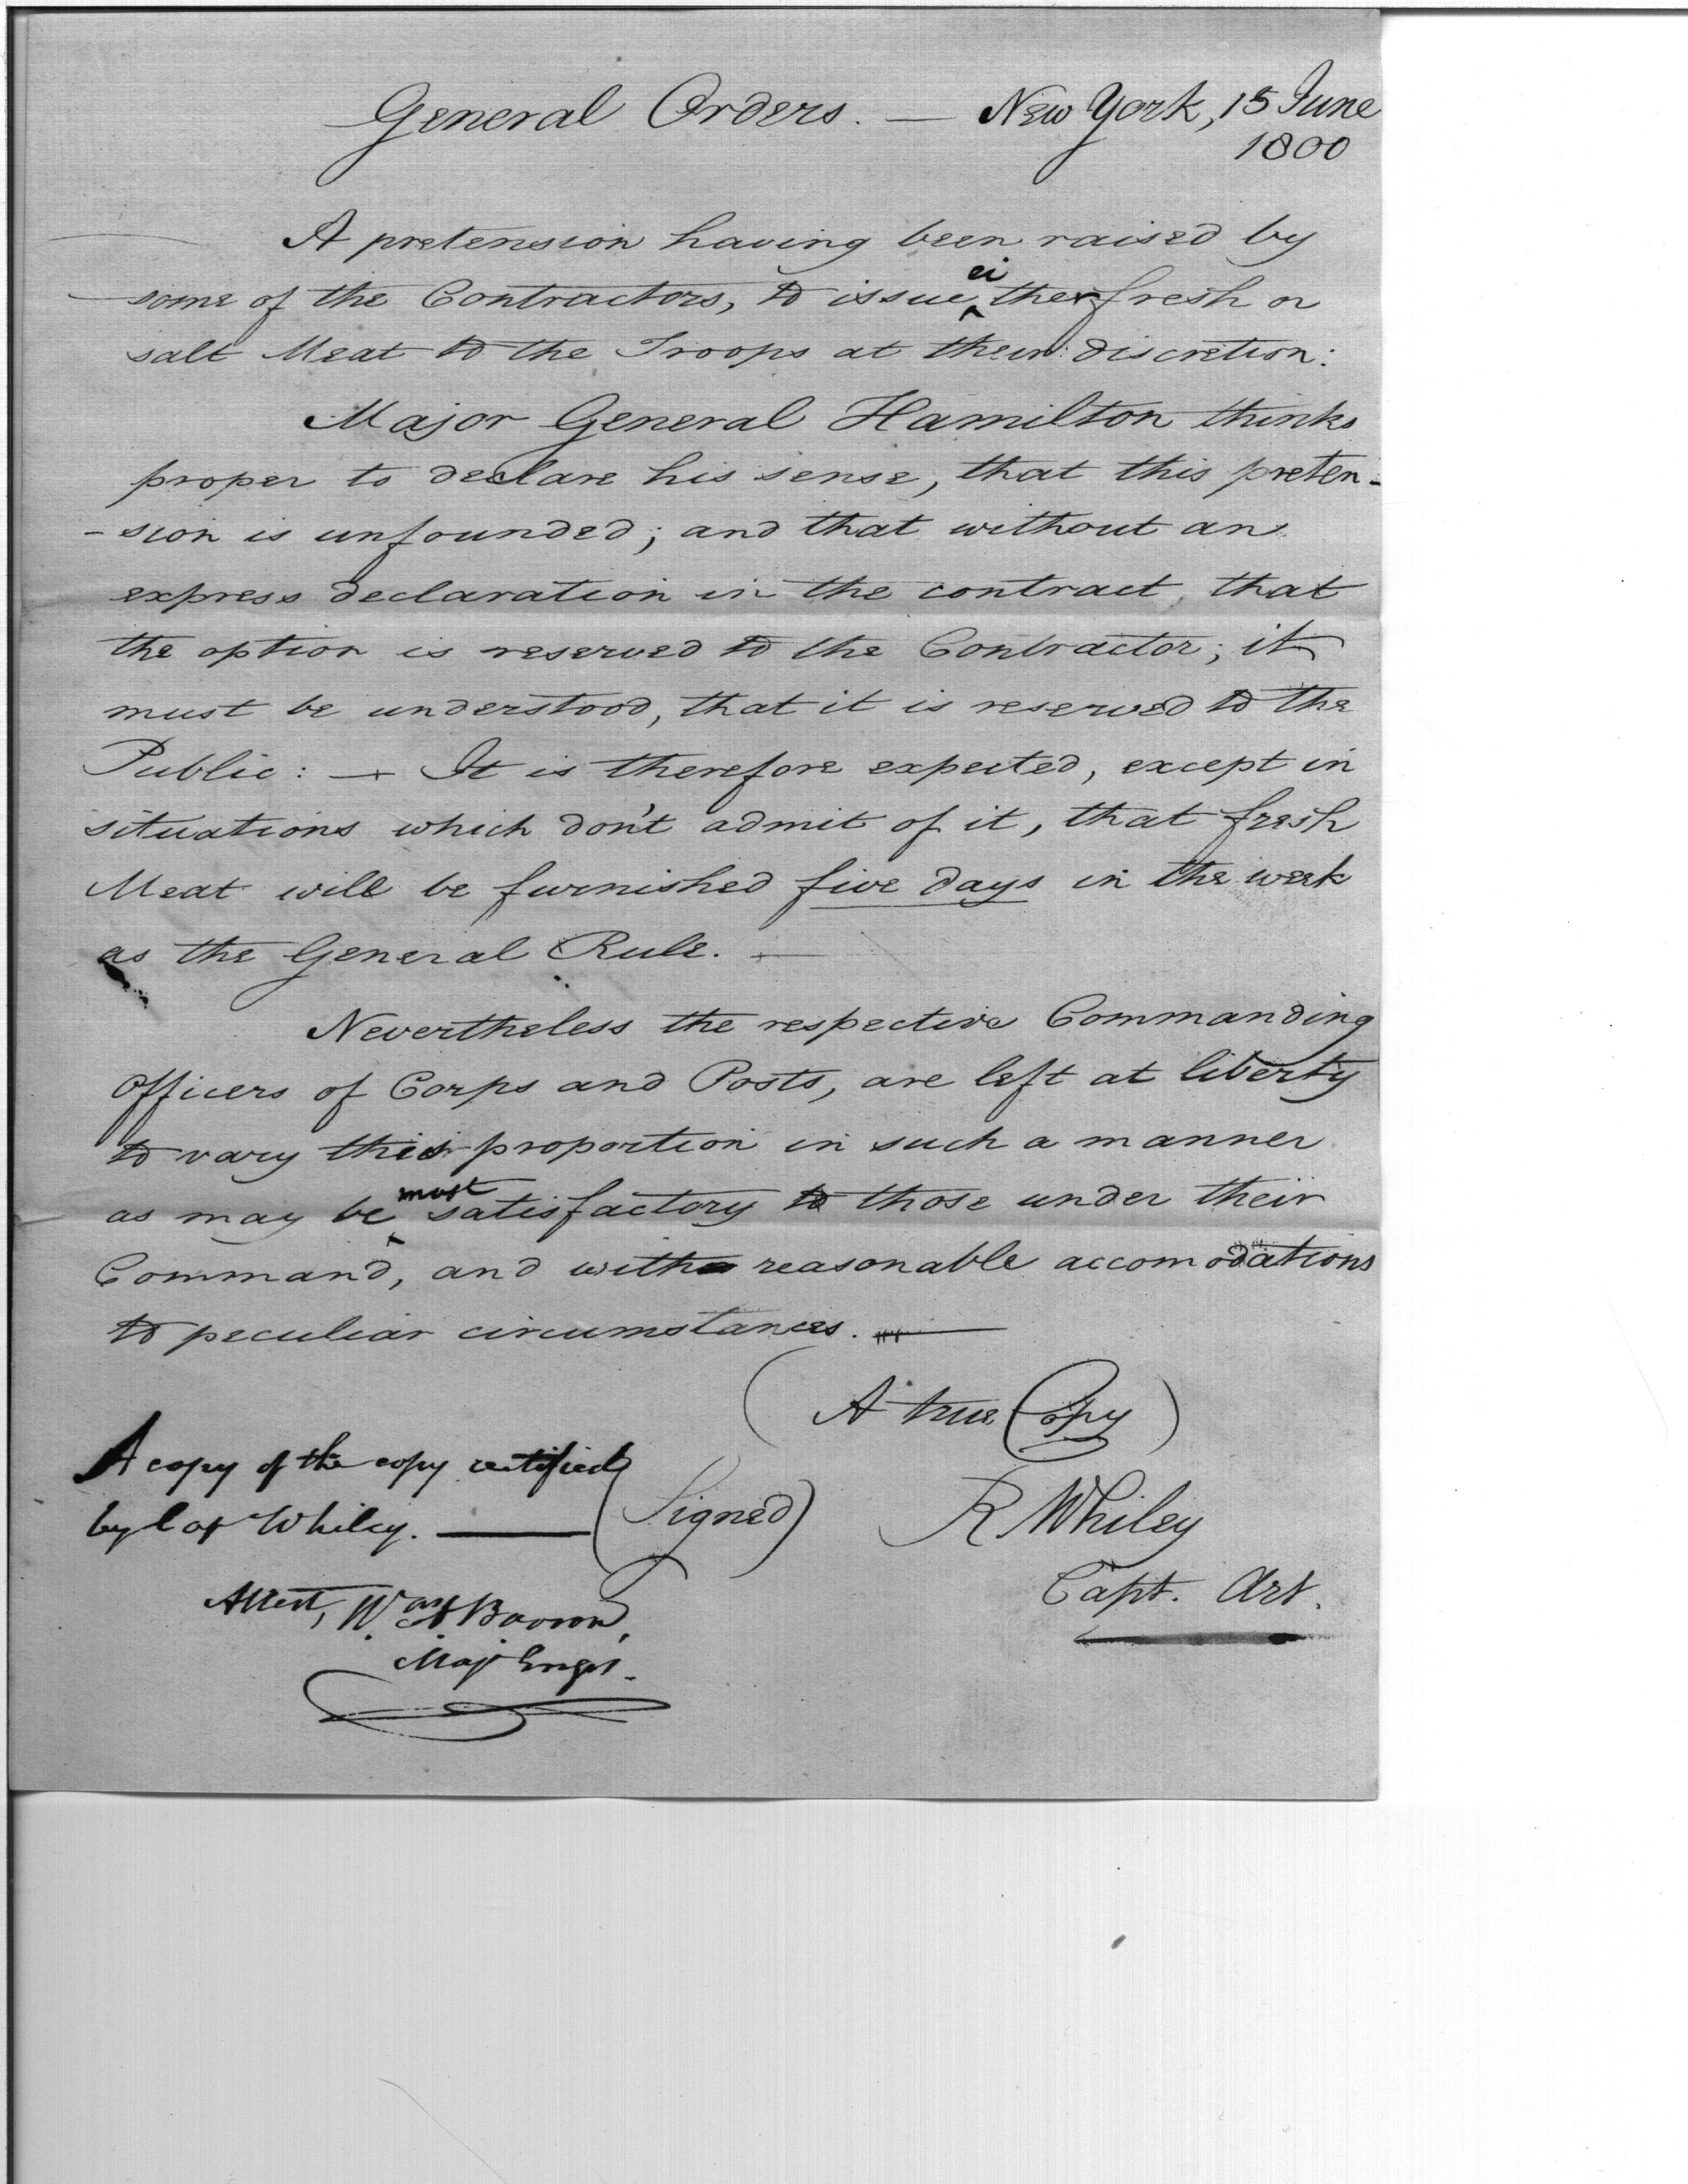 General Orders. — New York, 15 June
1800
A pretension having been raised by
some of the Contractors, to issue either fresh or
salt Meat to the Troops at their discretion:
Major General Hamilton thinks
proper to declare his sense, that this preten-
-sion is unfounded; and that without an
express declaration in the contract, that
the option is reserved to the Contractor; it
must be understood, that it is reserved to the
Public: — It is therefore expected, except in
situations which don't admit of it, that fresh
Meat will be furnished five days in the week
as the General Rule. —
Nevertheless the respective Commanding
Officers of Corps and Posts, are left at liberty
to vary this proportion in such a manner
as may be most satisfactory to those under their
Command, and with reasonable accomodations
to peculiar circumstances. —
(A true Copy)
A copy of the copy certified
by Cap Whiley. — (Signed) R Whiley
Capt. Art.
Attest, Wm. A Barron,
Maj Engrs.